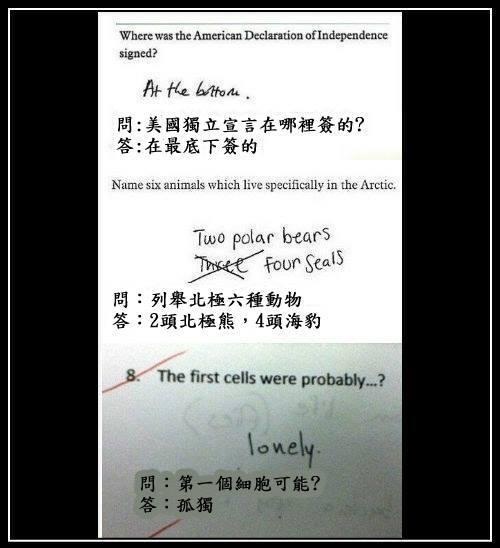 Where was the American Declaration of Independence
signed?
At the bottom.
問:美國獨立宣言在哪裡簽的?
答:在最底下簽的
Name six animals which live specifically in the Arctic.
Two polar bears
Three Four Seals
問：列舉北極六種動物
答：2頭北極熊，4頭海豹
8. The first cells were probably...?
lonely.
問：第一個細胞可能?
答：孤獨